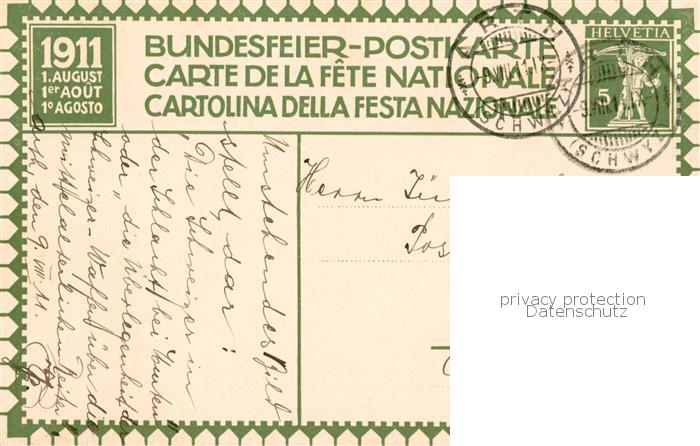 1911
1. AUGUST
1er AOÛT
1º AGOSTO
BUNDESFEIER-POSTKARTE
CARTE DE LA FÊTE NATIONALE
CARTOLINA DELLA FESTA NAZIONALE
HELVETIA
5
ARTH
(SCHWYZ)
ARTH
(SCHWYZ)
Umstehendes Bild
stellt dar:
"Die Schweizer in
der Schlacht bei
oder "die Überlegenheit der
Schweizer-Waffen über die
mittelalterlichen Reiter"
Arth, den 9. VIII. 11.
Herrn
privacy protection
Datenschutz